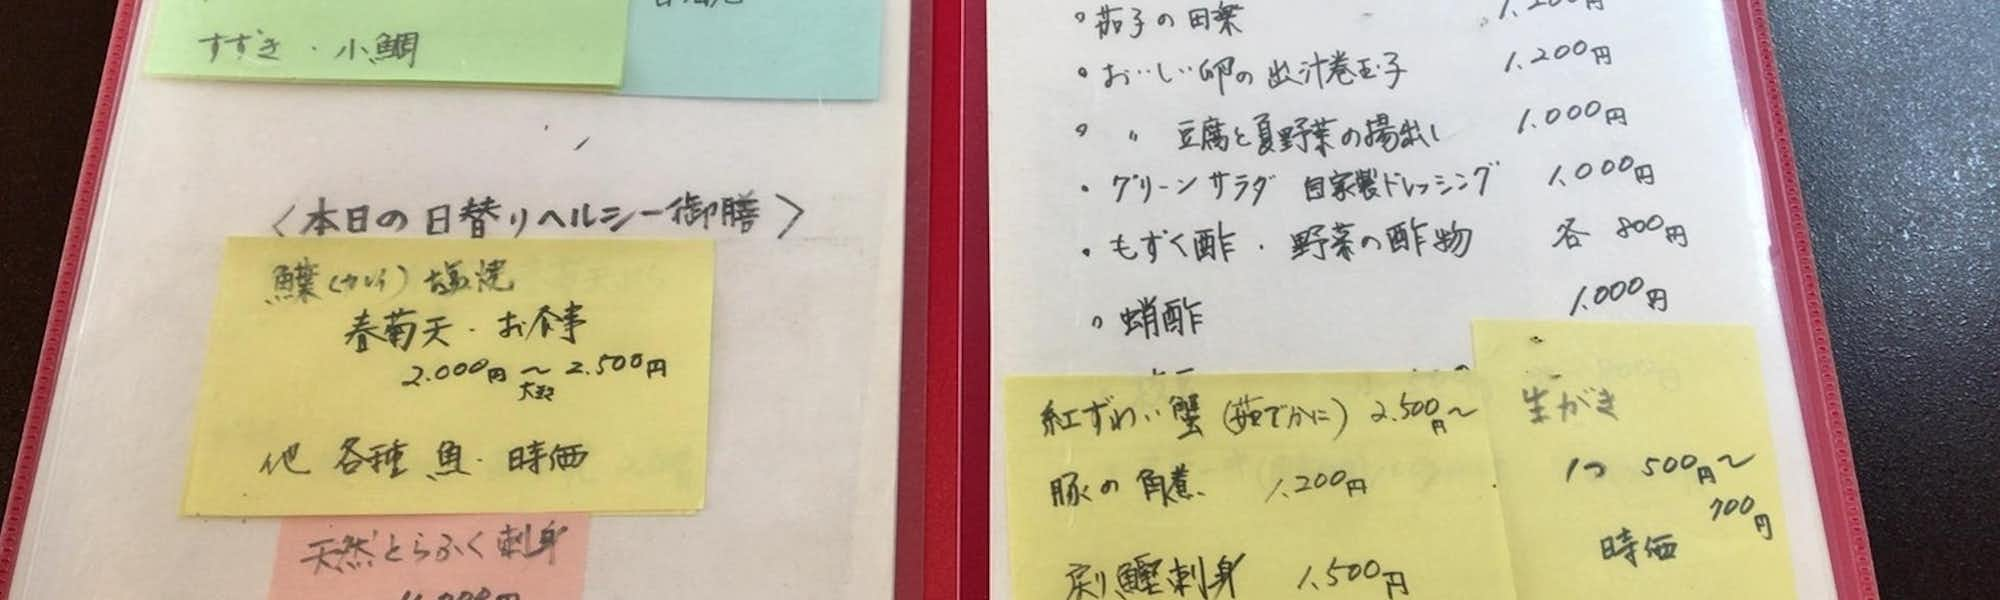 すずき・小鯛
〈本日の日替りヘルシー御膳〉
鰈(カレイ)塩焼
春菊天・お食事
2.000円〜2.500円
他 各種 魚・時価
天然とらふく刺身
・茄子の田楽 1.200円
・おいしい卵の出汁巻玉子 1.200円
・〃 豆腐と夏野菜の揚出し 1.000円
・グリーンサラダ 自家製ドレッシング 1.000円
・もずく酢・野菜の酢物 各 800円
・蛸酢 1.000円
紅ずわい蟹(茹でかに) 2.500円〜
豚の角煮 1.200円
戻り鰹刺身 1.500円
生がき
1つ 500円〜
700円
時価